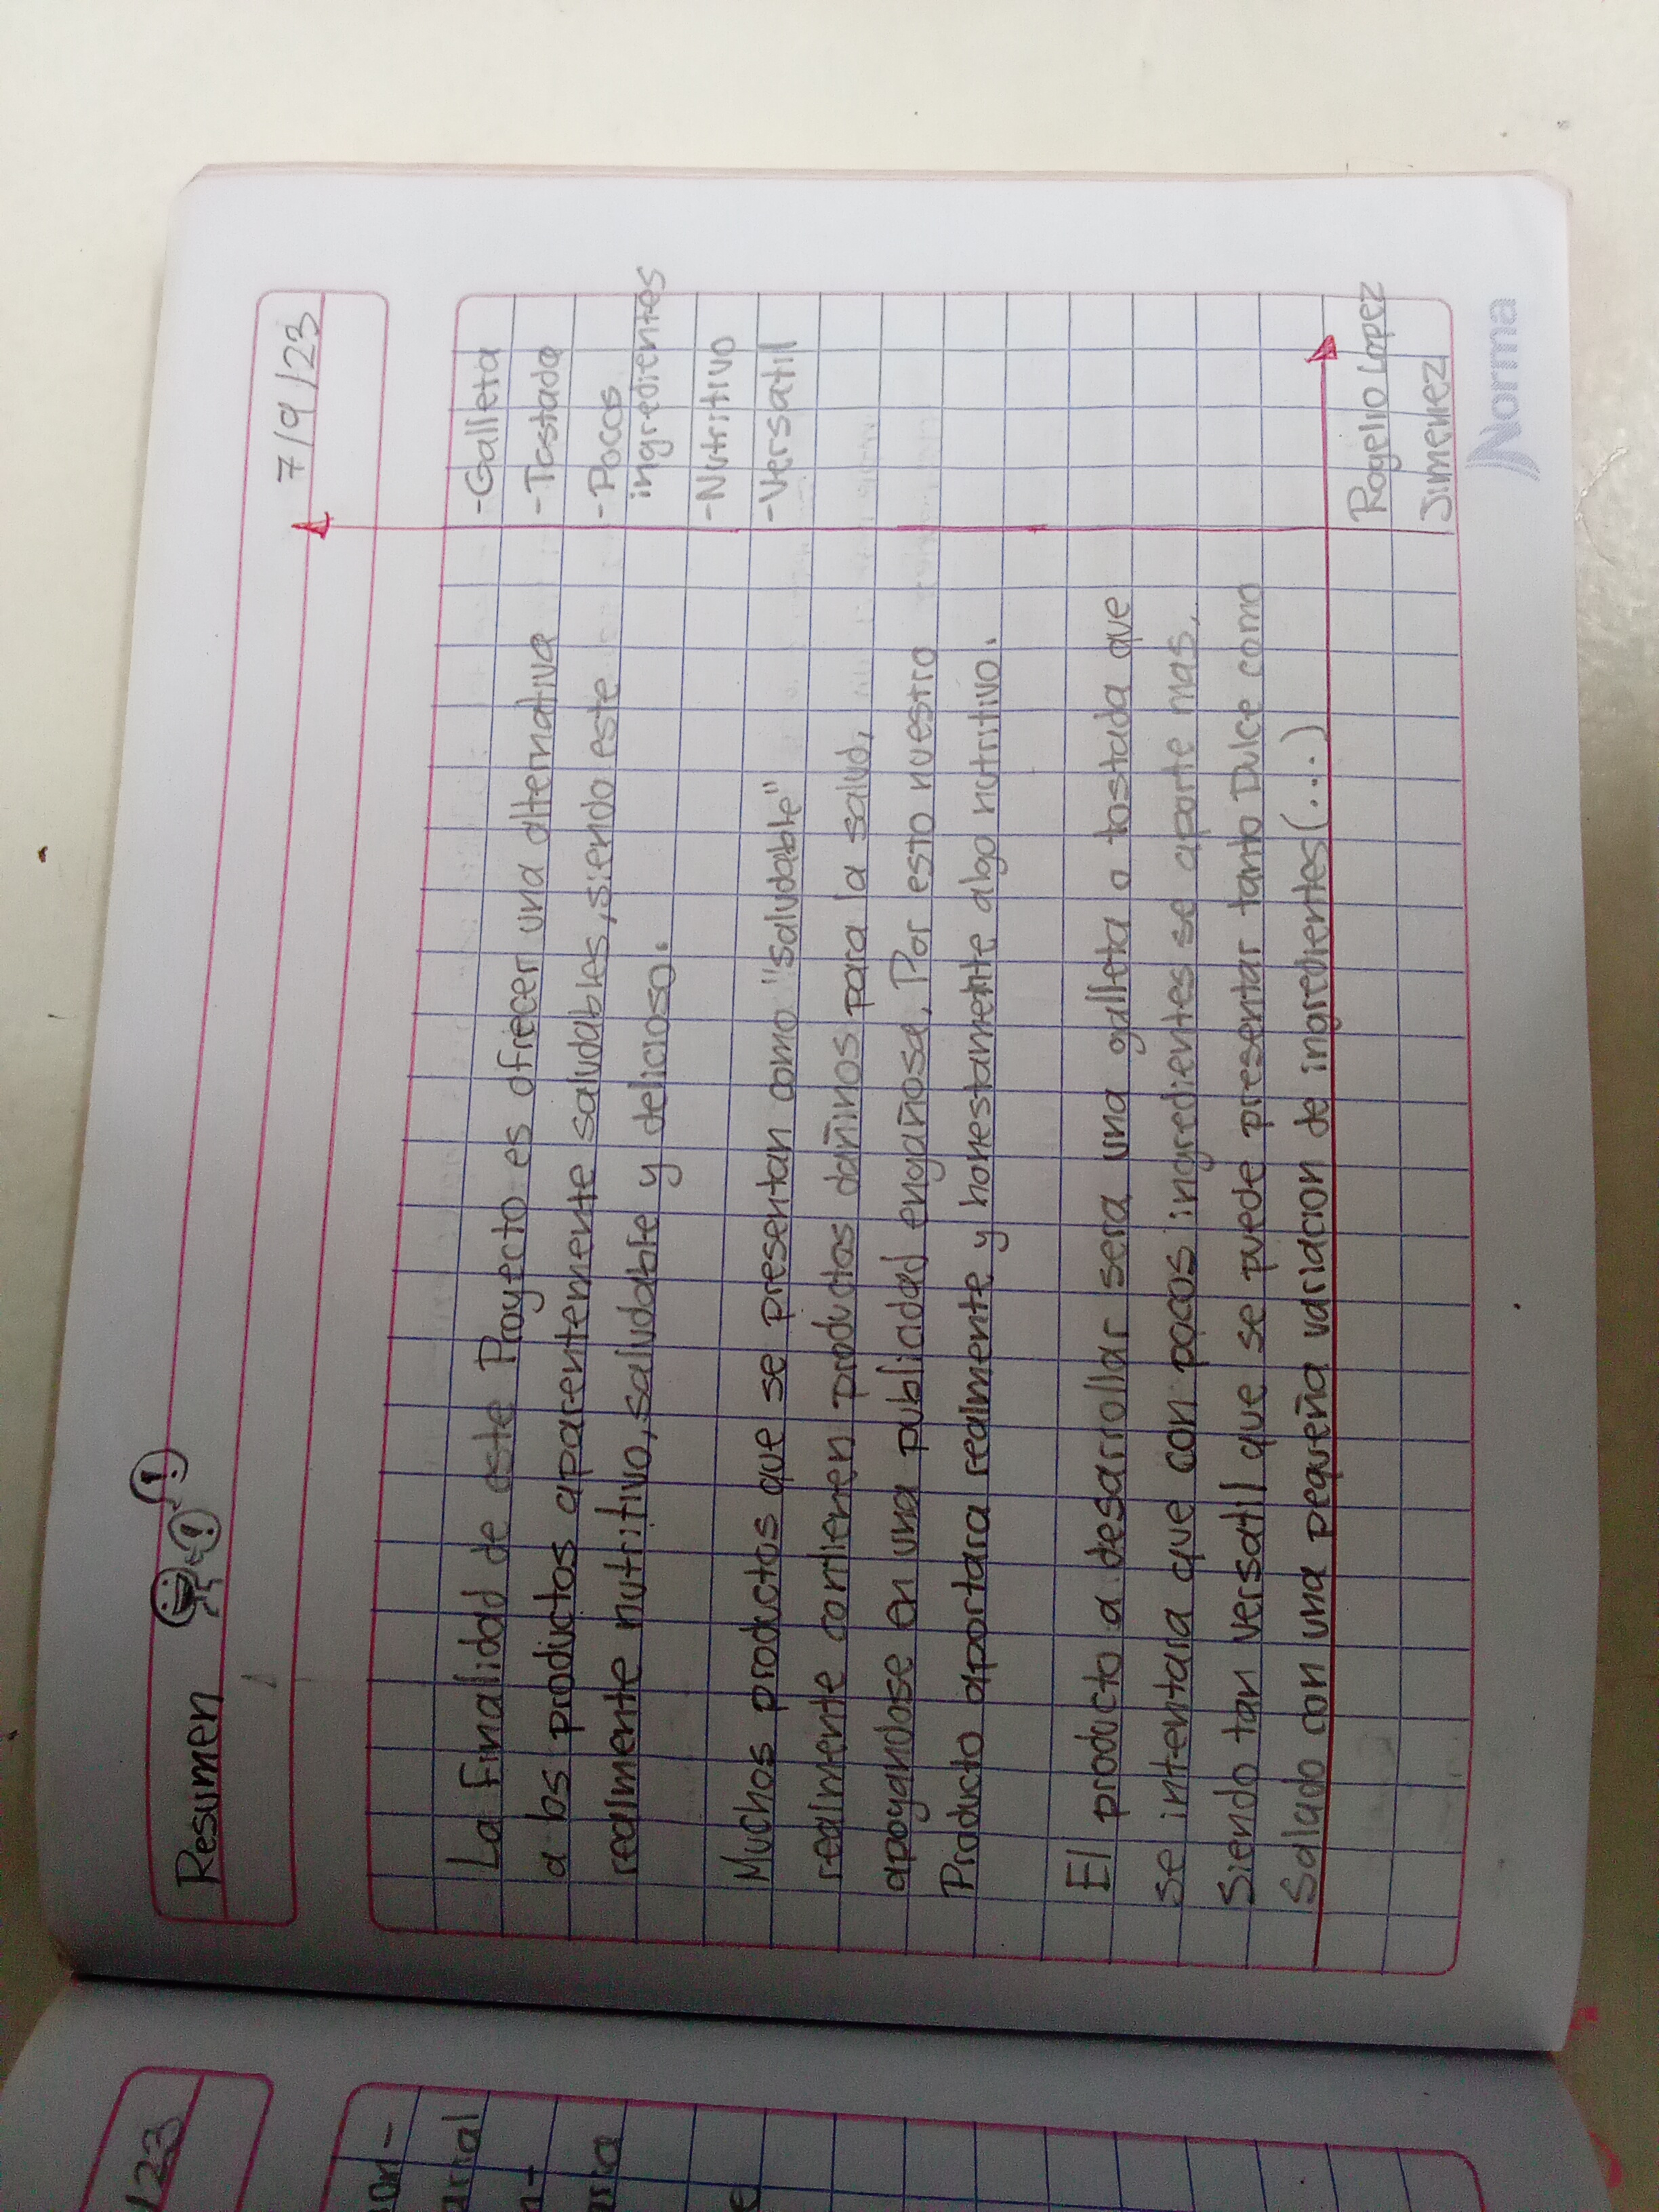 Resumen
7/9/23
La finalidad de este Proyecto es ofrecer una alternativa
a los productos aparentemente saludables, siendo este
realmente nutritivo, saludable y delicioso.
Muchos productos que se presentan como "saludable"
realmente contienen productos dañinos para la salud,
apoyandose en una publicidad engañosa. Por esto nuestro
Producto aportara realmente y honestamente algo nutritivo.
El producto a desarrollar sera una galleta o tostada que
se intentara que con pocos ingredientes se aporte mas.
Siendo tan versatil que se puede presentar tanto Dulce como
Salado con una pequeña variacion de ingredientes(...)
-Galleta
-Tostada
-Pocos
ingredientes
-Nutritivo
-Versatil
Rogelio Lopez
Jimenez
Norma
/23